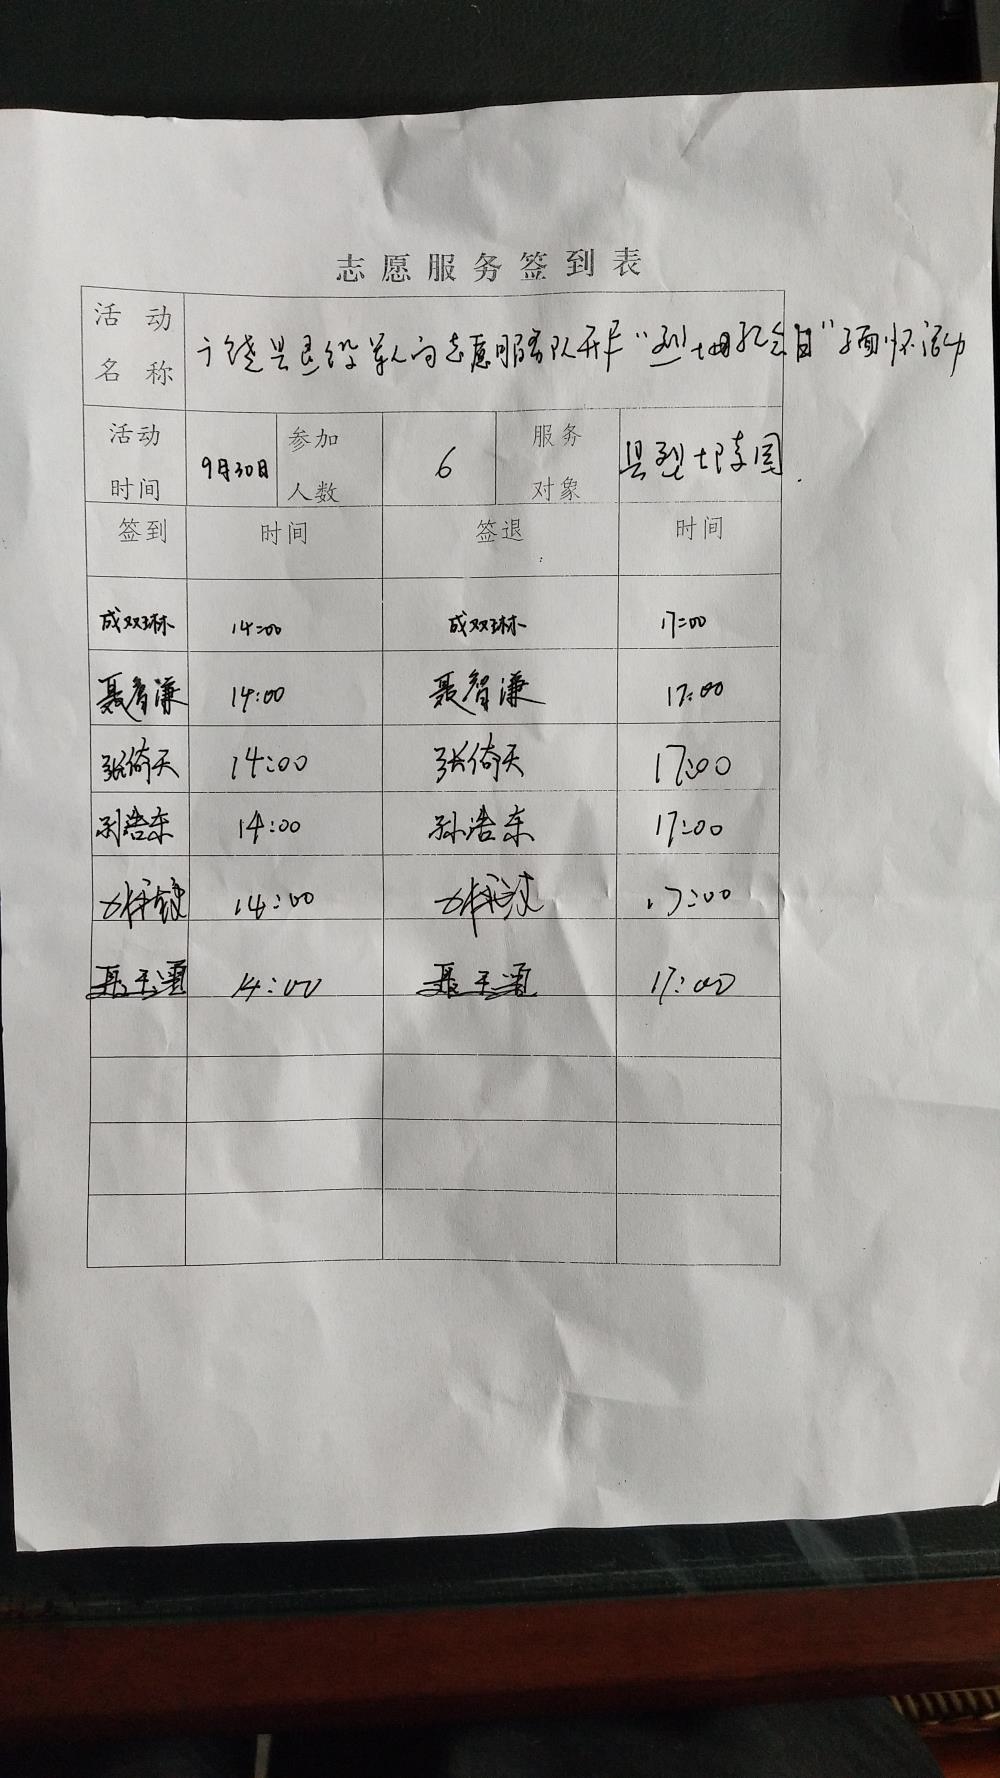 志愿服务签到表
活动名称 广饶县退役军人局志愿服务队开展“烈士纪念日”缅怀活动
活动时间 9月30日 参加人数 6 服务对象 县烈士陵园
签到 时间 签退 时间
成双琳 14:00 成双琳 17:00
聂智谦 14:00 聂智谦 17:00
张倚天 14:00 张倚天 17:00
孙浩东 14:00 孙浩东 17:00
14:00 17:00
14:00 17:00